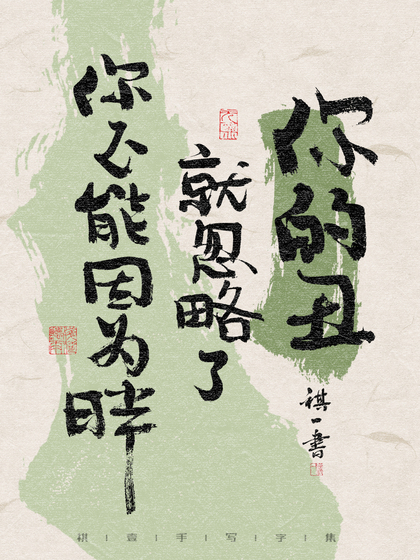 你不能因为胖
就忽略了
你的丑
祺一書
祺|壹|手|写|字|集